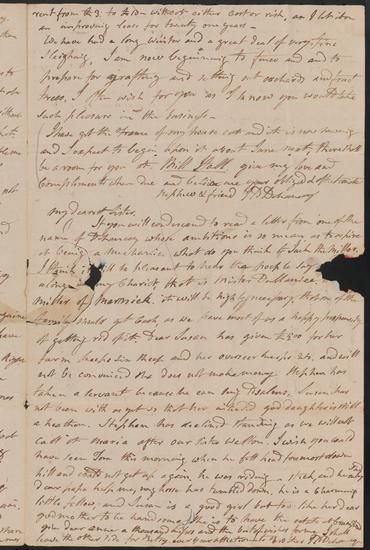 rent from the 3: to the 10 without either cost or risk, as I let it on
an improving lease for twenty one years -
We have had a long Winter and a great deal of very fine
Sleighing, I am now beginning to fence and and to
prepare for a grafting and setting out orchards and fruit
trees. I often wish for you as I know you would take
such pleasure in the business -
I have got the frame of my house cut and it is now sawing
and I expect to begin upon it about June next, there shall
be a room for you at Mill Hall. give my love and
Compliments when due and believe me your obliged affectionate
nephew & friend J P DeLancey
my dearest Sister.
If you will condescend to read a letter from one of the
name of DeLancey whose ambition is so mean as to aspire
at being a mechanic. what do you think of Jack the Miller.
I think it will be pleasant to hear the people say
along my Chariot that is Mister DeLancey
Miller of Mamaroneck. it will be highly necessary that some of the
family should get cash, as we have most of us a happy propensity
of getting rid of it. Dear Susan has given for her
farm sheep skin theef and her overseer keeps and will
not be convinced she does not make money. Stephen has
taken a servant because he can sing Psalms. Susan has
not been with us yet so that her god daughter is still
a heathen. Stephen has declined standing as we will not
call it Maria after our Sister Walton. I wish you could
have seen Tom this morning when he fell head foremost down
hill and could not get up again, he was riding a stick, and he cried
dear papa help me, my horse has tumbled down. he is a Charming
little fellow, and Susan is a good girl but too like her dear
god mother to be handsome, she is to have the estate
give dear Anne a thousand kisses and the baby
leave the other side for Betsy ever your affectionate Brother J P DeLancey